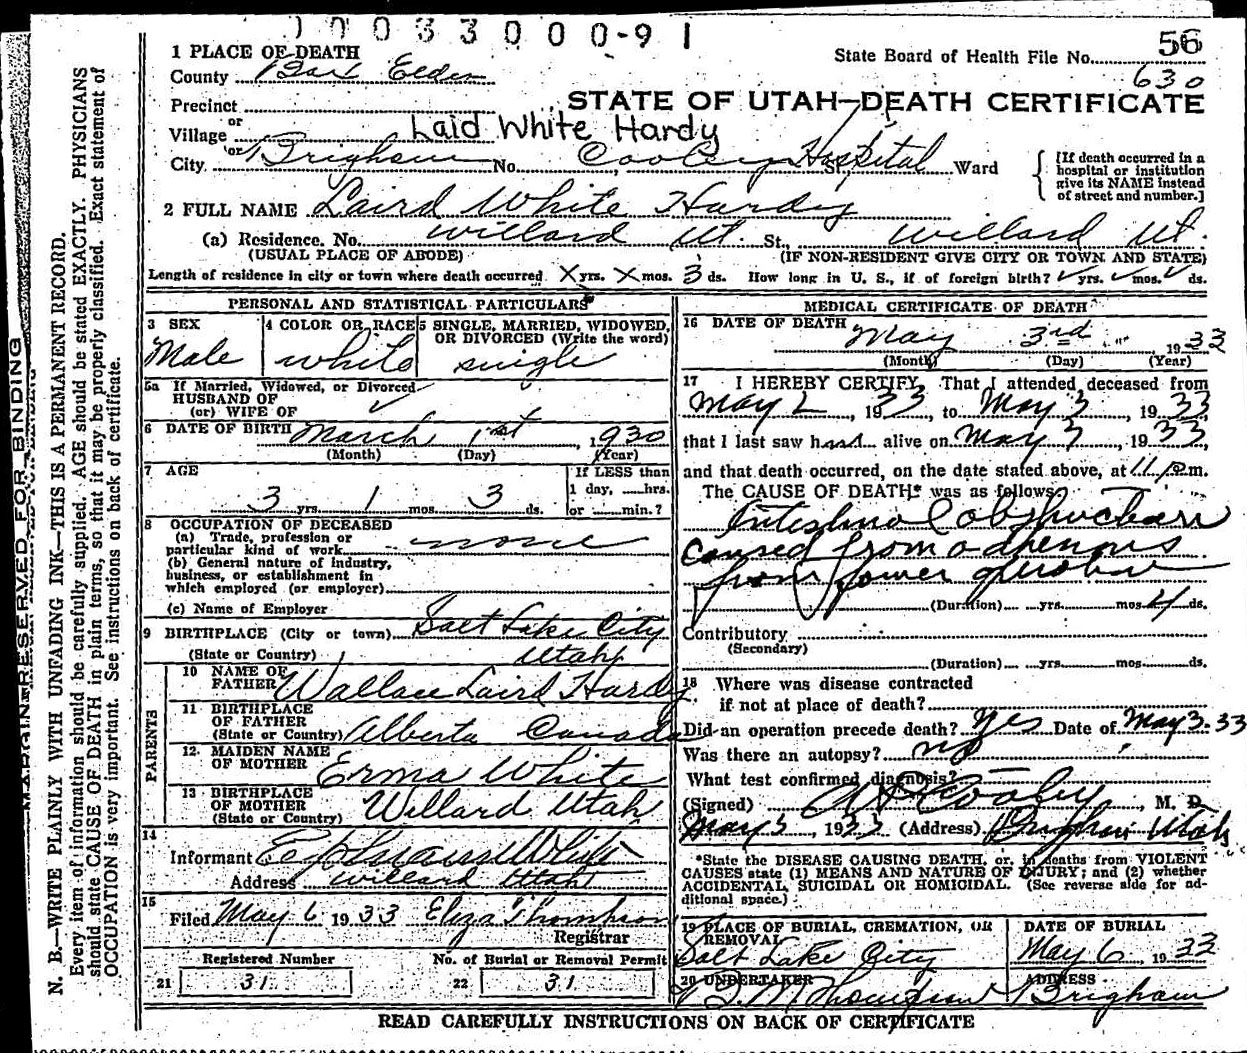 10033000-91
56
State Board of Health File No.
630
1 PLACE OF DEATH
County Box Elder
STATE OF UTAH—DEATH CERTIFICATE
Precinct
or
Village
Laid White Hardy
or
City Brigham No. Cooley Hospital St., Ward
[If death occurred in a hospital or institution give its NAME instead of street and number.]
2 FULL NAME Laird White Hardy
(a) Residence. No. Willard Ut. St., Willard Ut.
(USUAL PLACE OF ABODE) (IF NON-RESIDENT GIVE CITY OR TOWN AND STATE)
Length of residence in city or town where death occurred X yrs. X mos. 3 ds. How long in U. S., if of foreign birth? ✓ yrs. ✓ mos. ✓ ds.
PERSONAL AND STATISTICAL PARTICULARS
3 SEX
Male
4 COLOR OR RACE
white
5 SINGLE, MARRIED, WIDOWED, OR DIVORCED (Write the word)
single
5a If Married, Widowed, or Divorced
HUSBAND OF
(or) WIFE OF
6 DATE OF BIRTH March 1st, 1930
(Month) (Day) (Year)
7 AGE
3 yrs. 1 mos. 3 ds.
If LESS than
1 day, hrs.
or min.?
8 OCCUPATION OF DECEASED
(a) Trade, profession or
particular kind of work none
(b) General nature of industry,
business, or establishment in
which employed (or employer)
(c) Name of Employer
9 BIRTHPLACE (City or town) Salt Lake City
(State or Country) Utah
PARENTS
10 NAME OF
FATHER Wallace Laird Hardy
11 BIRTHPLACE
OF FATHER
(State or Country) Alberta Canada
12 MAIDEN NAME
OF MOTHER Erma White
13 BIRTHPLACE
OF MOTHER
(State or Country) Willard Utah
14
Informant Ephraim White
Address Willard Utah
15
Filed May 6 1933 Eliza Thompson
Registrar
Registered Number
21 31
No. of Burial or Removal Permit
22 31
MEDICAL CERTIFICATE OF DEATH
16 DATE OF DEATH
May 3rd 1933
(Month) (Day) (Year)
17 I HEREBY CERTIFY, That I attended deceased from
May 2, 1933, to May 3, 1933,
that I last saw h alive on May 3, 1933,
and that death occurred, on the date stated above, at 11 P.m.
The CAUSE OF DEATH* was as follows:
Intestinal obstruction
caused from adhesions
from former operation
(Duration) yrs. mos. 4 ds.
Contributory
(Secondary)
(Duration) yrs. mos. ds.
18 Where was disease contracted
if not at place of death?
Did an operation precede death? Yes Date of May 3-33
Was there an autopsy? no
What test confirmed diagnosis?
(Signed) Cooley, M. D.
May 3, 1933 (Address) Brigham Utah
*State the DISEASE CAUSING DEATH, or, in deaths from VIOLENT
CAUSES state (1) MEANS AND NATURE OF INJURY; and (2) whether
ACCIDENTAL, SUICIDAL OR HOMICIDAL. (See reverse side for ad-
ditional space.)
19 PLACE OF BURIAL, CREMATION, OR
REMOVAL
Salt Lake City
DATE OF BURIAL
May 6, 1933
20 UNDERTAKER
Thompson
ADDRESS
Brigham
READ CAREFULLY INSTRUCTIONS ON BACK OF CERTIFICATE
MARGIN RESERVED FOR BINDING
N. B.—WRITE PLAINLY WITH UNFADING INK—THIS IS A PERMANENT RECORD.
Every item of information should be carefully supplied. AGE should be stated EXACTLY. PHYSICIANS
should state CAUSE OF DEATH in plain terms, so that it may be properly classified. Exact statement of
OCCUPATION is very important. See instructions on back of certificate.